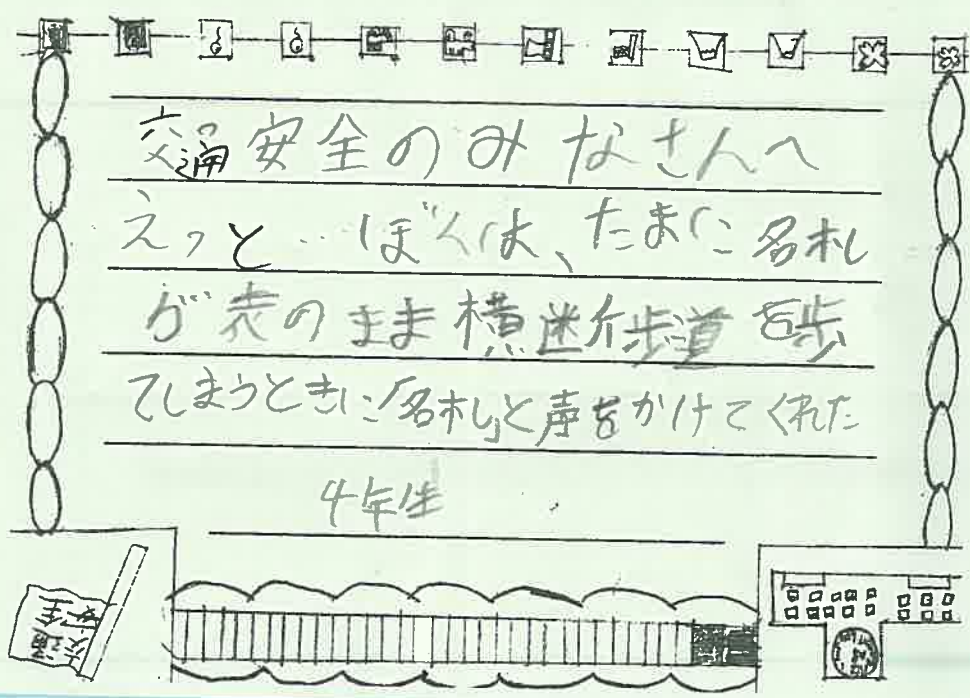 交通安全のみなさんへ
えっと…ぼくは、たまに名札
が表のまま横断歩道を歩
てしまうときに「名札」と声をかけてくれた
4年生
交通安全